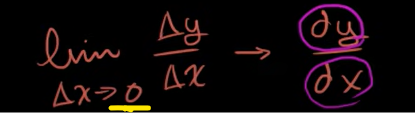 lim Δx→0 Δy/Δx → dy/dx